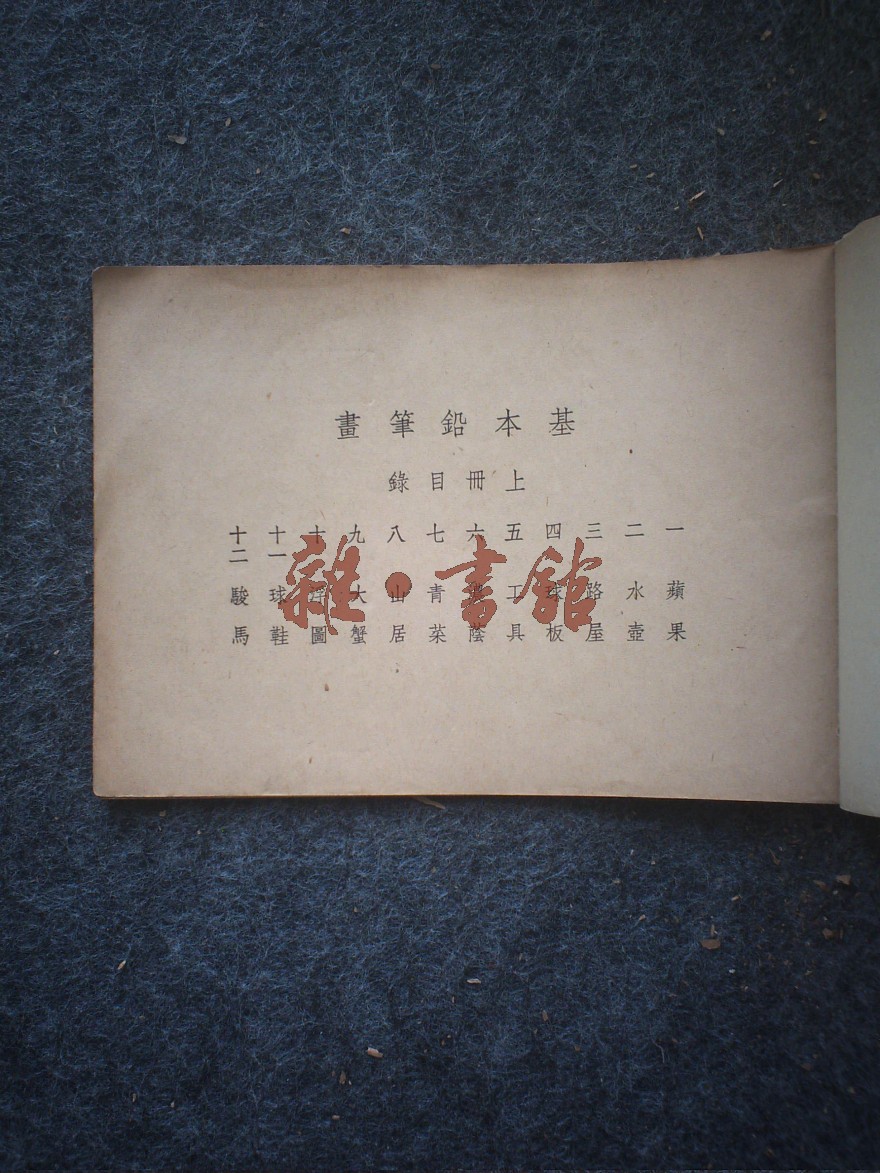 基本鉛筆畫
上冊目錄
一 蘋果
二 水壺
三 路屋
四 球板
五 工具
六 蔭
七 青菜
八 山居
九 大蟹
十 浮圖
十一 球鞋
十二 駿馬
雜·書館